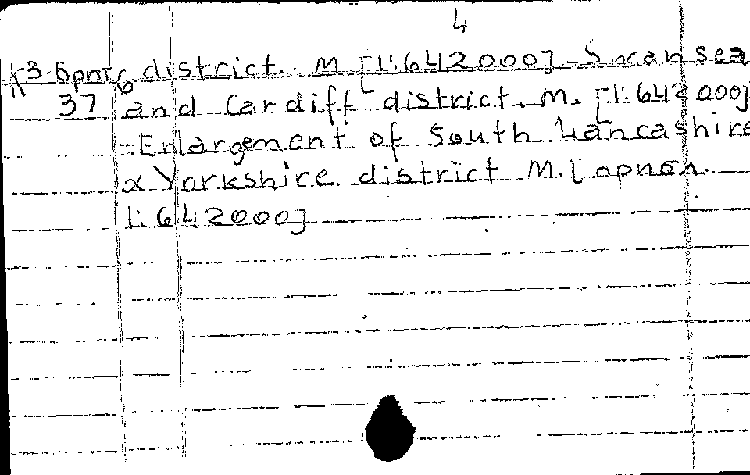 4
district. M [1:642000] Swansea
37 and Cardiff district. M. [1:642000]
- Enlargement of South Lancashire
& Yorkshire district M.
1:642000]